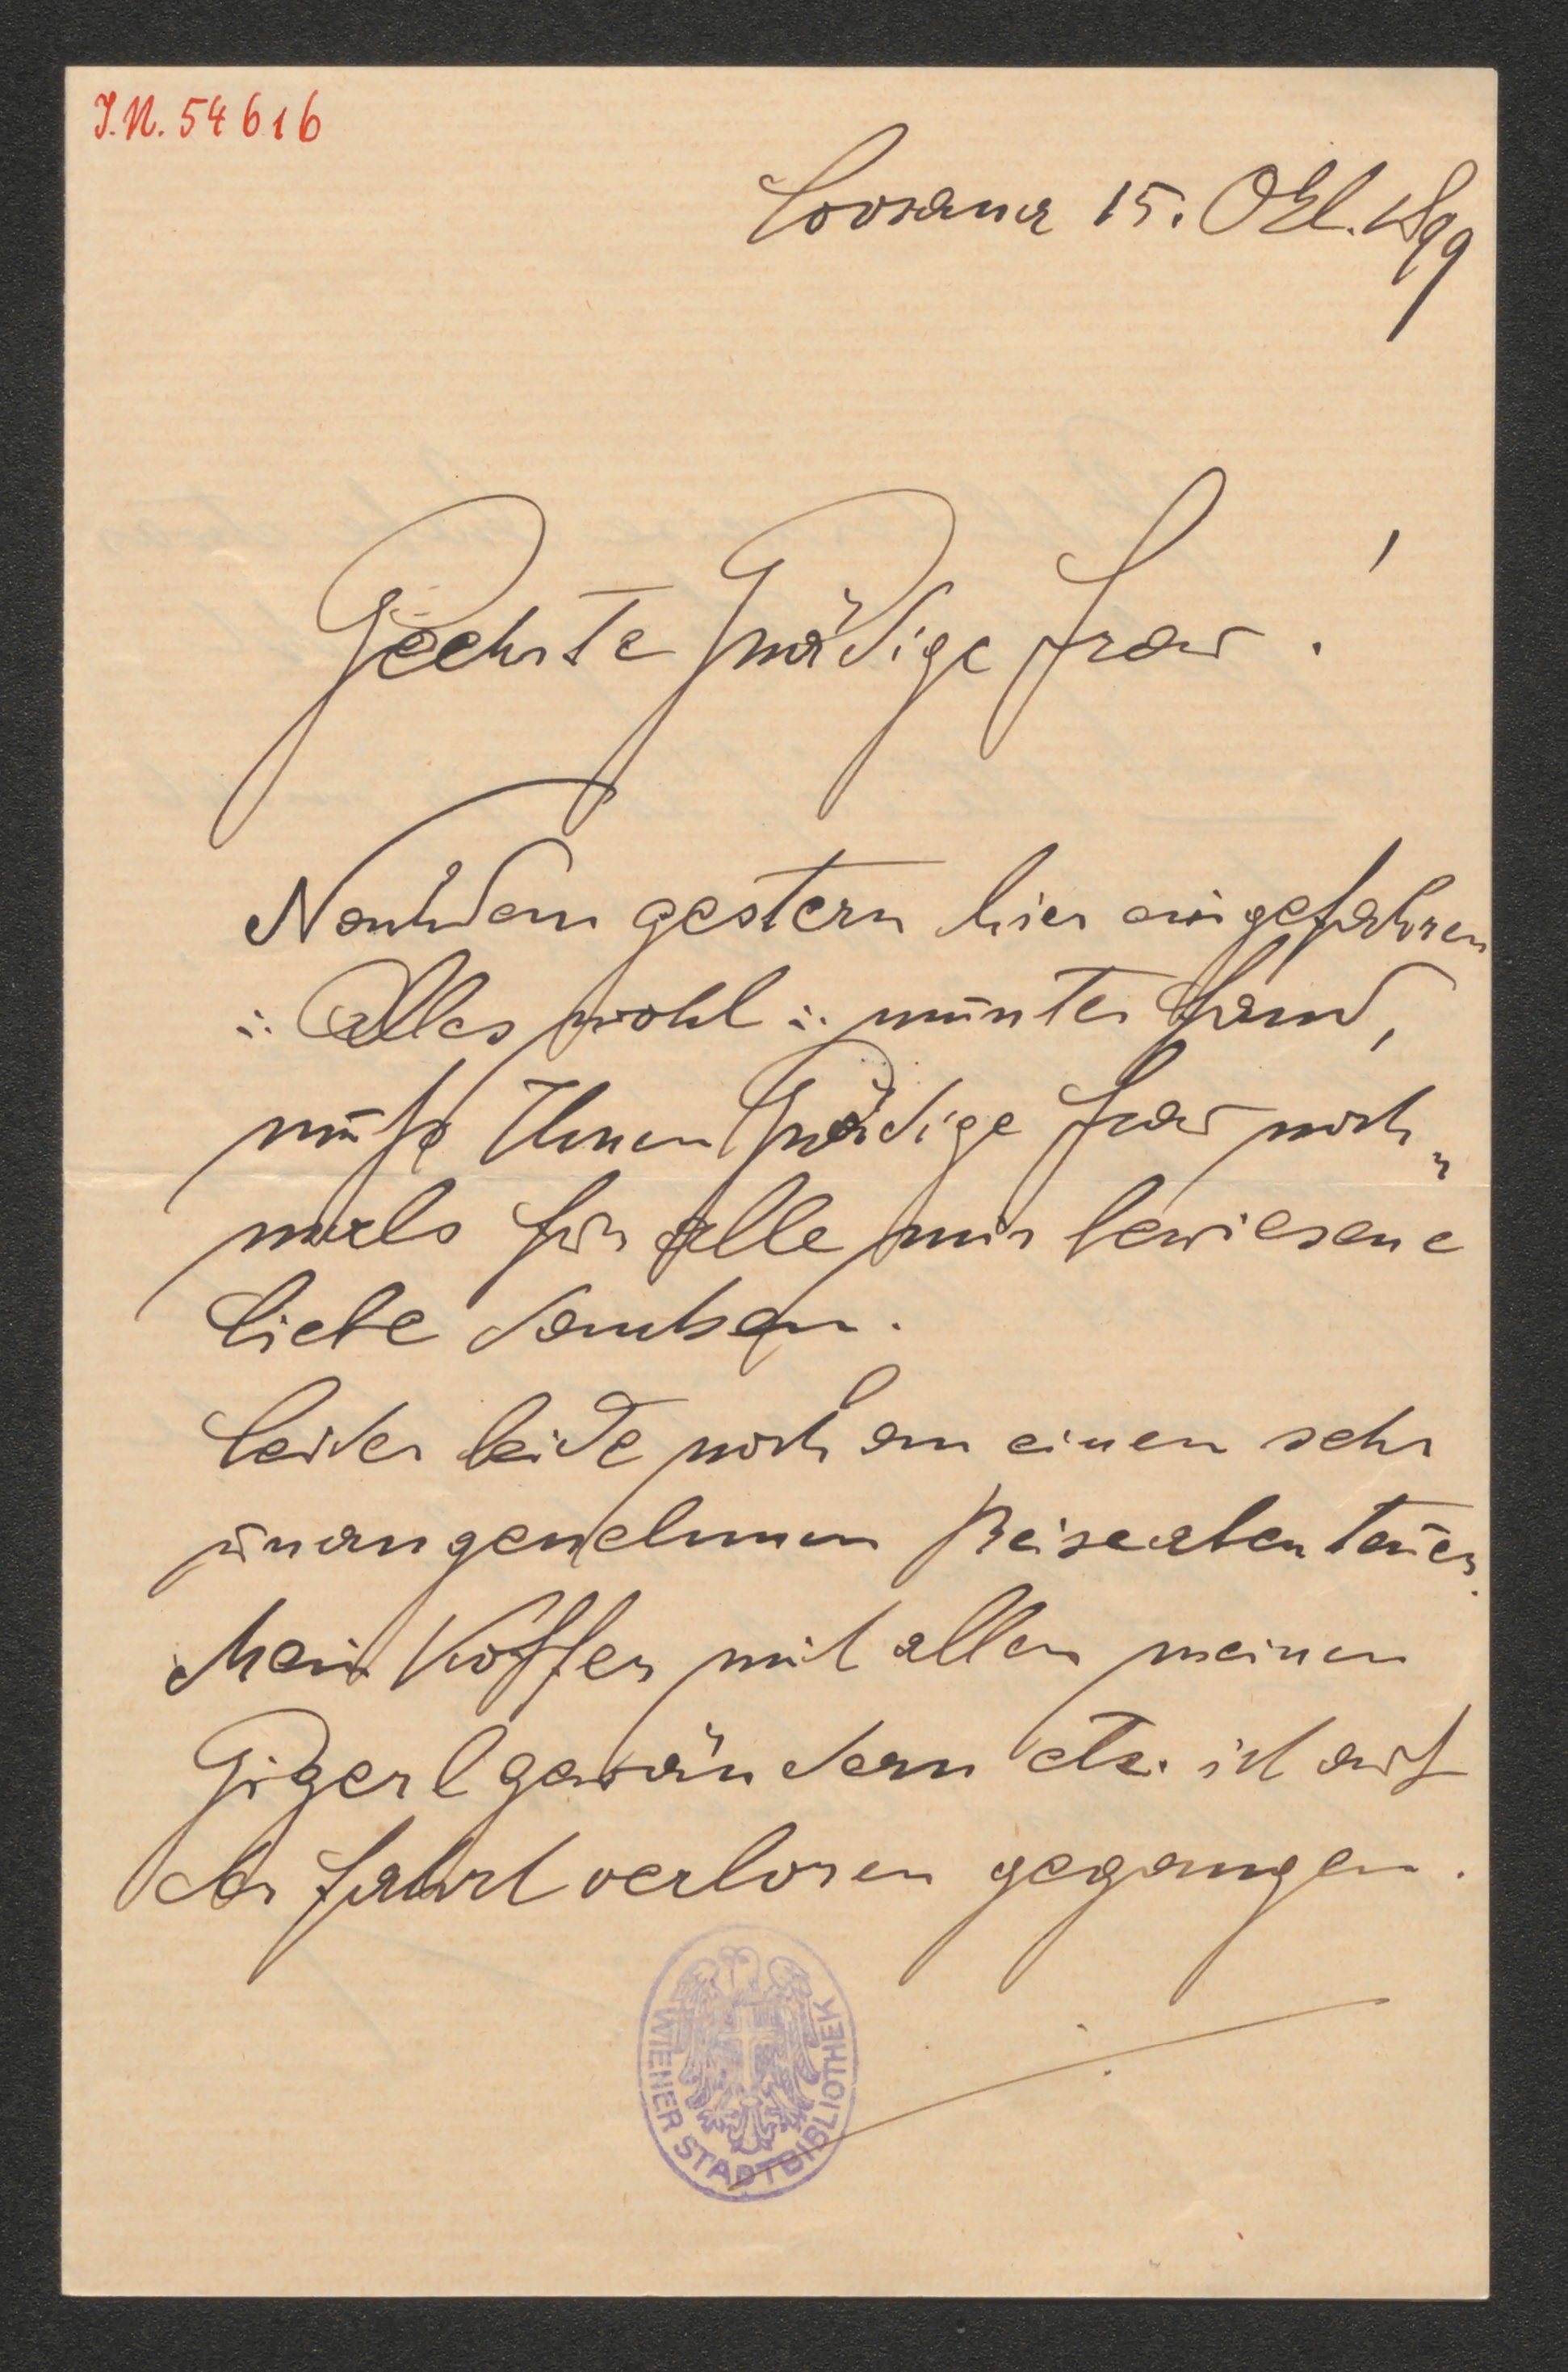 J.N. 54616
Lovrana 15. Okt. 1899
Geehrte Gnädige Frau!
Nachdem gestern hier eingefahren
:. Alles wohl :. munter fand,
muß Ihnen Gnädige Frau noch„
mals für alle mir bewiesene
Liebe danken.
Leider leide noch an einen sehr
unangenehmen Reiseabenteuer.
Mein Koffer mit allen meinen
Gigerlgewändern etz. ist auf
der Fahrt verloren gegangen.
WIENER STADTBIBLIOTHEK